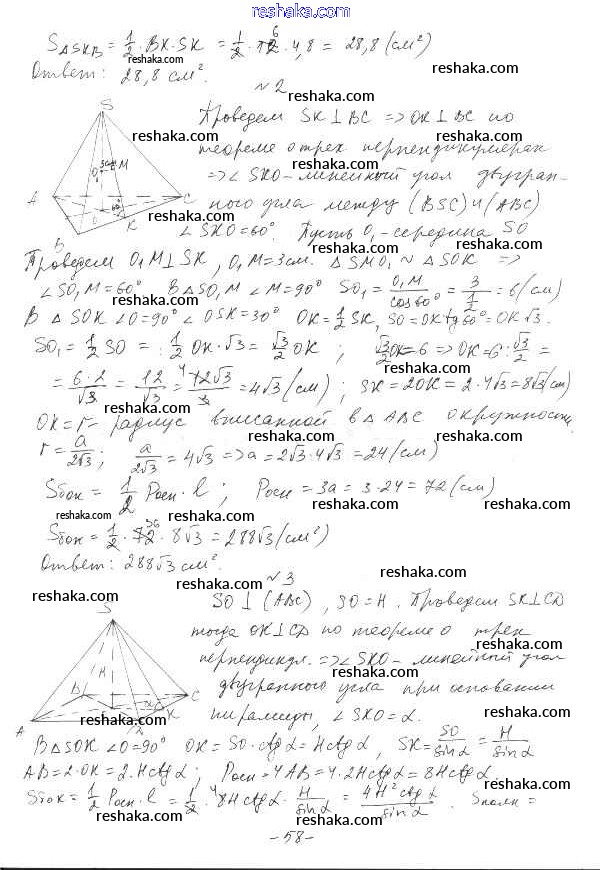 reshaka.com
S△SKB = 1/2 · BK · SK = 1/2 · 12 · 4,8 = 28,8 (см²)
Ответ: 28,8 см².
№2
Проведем SK⊥BC => OK⊥BC по
теореме о трех перпендикулярах
=> ∠SKO - линейный угол двугран-
ного угла между (BSC) и (ABC)
∠SKO = 60°. Пусть O₁ - середина SO
Проведем O₁M⊥SK, O₁M = 3см. △SMO₁ ~ △SOK =>
∠SO₁M = 60° В △SO₁M ∠M = 90° SO₁ = O₁M/cos60° = 3/(1/2) = 6 (см)
В △SOK ∠O = 90° ∠OSK = 30° OK = 1/2 SK, SO = OK tg60° = OK√3.
SO₁ = 1/2 SO = 1/2 OK · √3 = √3/2 OK ; √3/2 OK = 6 => OK = 6 : √3/2 =
= 6·2/√3 = 12/√3 = 12√3/3 = 4√3 (см) ; SK = 2OK = 2 · 4√3 = 8√3 (см)
OK = r - радиус вписанной в △ABC окружности
r = a/2√3 ; a/2√3 = 4√3 => a = 2√3 · 4√3 = 24 (см)
Sбок = 1/2 Pосн · l ; Pосн = 3a = 3 · 24 = 72 (см)
Sбок = 1/2 · 72 · 8√3 = 288√3 (см²)
Ответ: 288√3 см².
№3
SO ⊥ (ABC), SO = H. Проведем SK⊥CD
тогда OK⊥CD по теореме о трех
перпендикул. => ∠SKO - линейный угол
двугранного угла при основании
пирамиды, ∠SKO = α.
В △SOK ∠O = 90° OK = SO · ctgα = Hctgα, SK = SO/sinα = H/sinα
AB = 2·OK = 2·Hctgα ; Pосн = 4AB = 4·2Hctgα = 8Hctgα
Sбок = 1/2 Pосн · l = 1/2 · 8Hctgα · H/sinα = 4H²ctgα/sinα . Sполн =
- 58 -